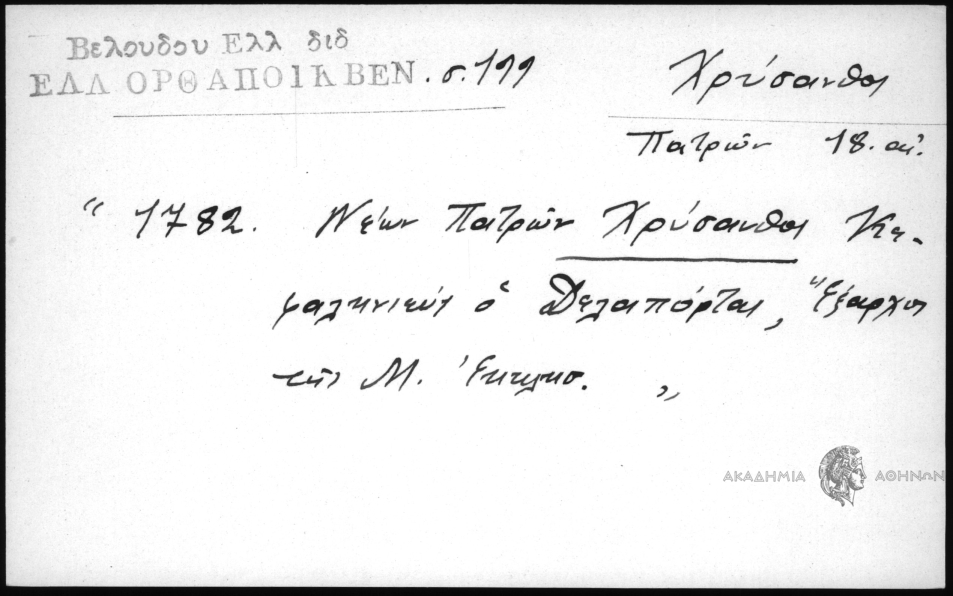 Βελουδου Ελλ διδ
ΕΛΛ ΟΡΘ ΑΠΟΙΚ ΒΕΝ. σ. 199
Χρύσανθος
Πατρῶν 18. αἰ.
“ 1782. Νέων Πατρῶν Χρύσανθος Κε-
φαληνιεύς ὁ Δελαπόρτας, Ἔξαρχος
τῆς Μ. Ἐκκλησ. „
ΑΚΑΔΗΜΙΑ ΑΘΗΝΩΝ